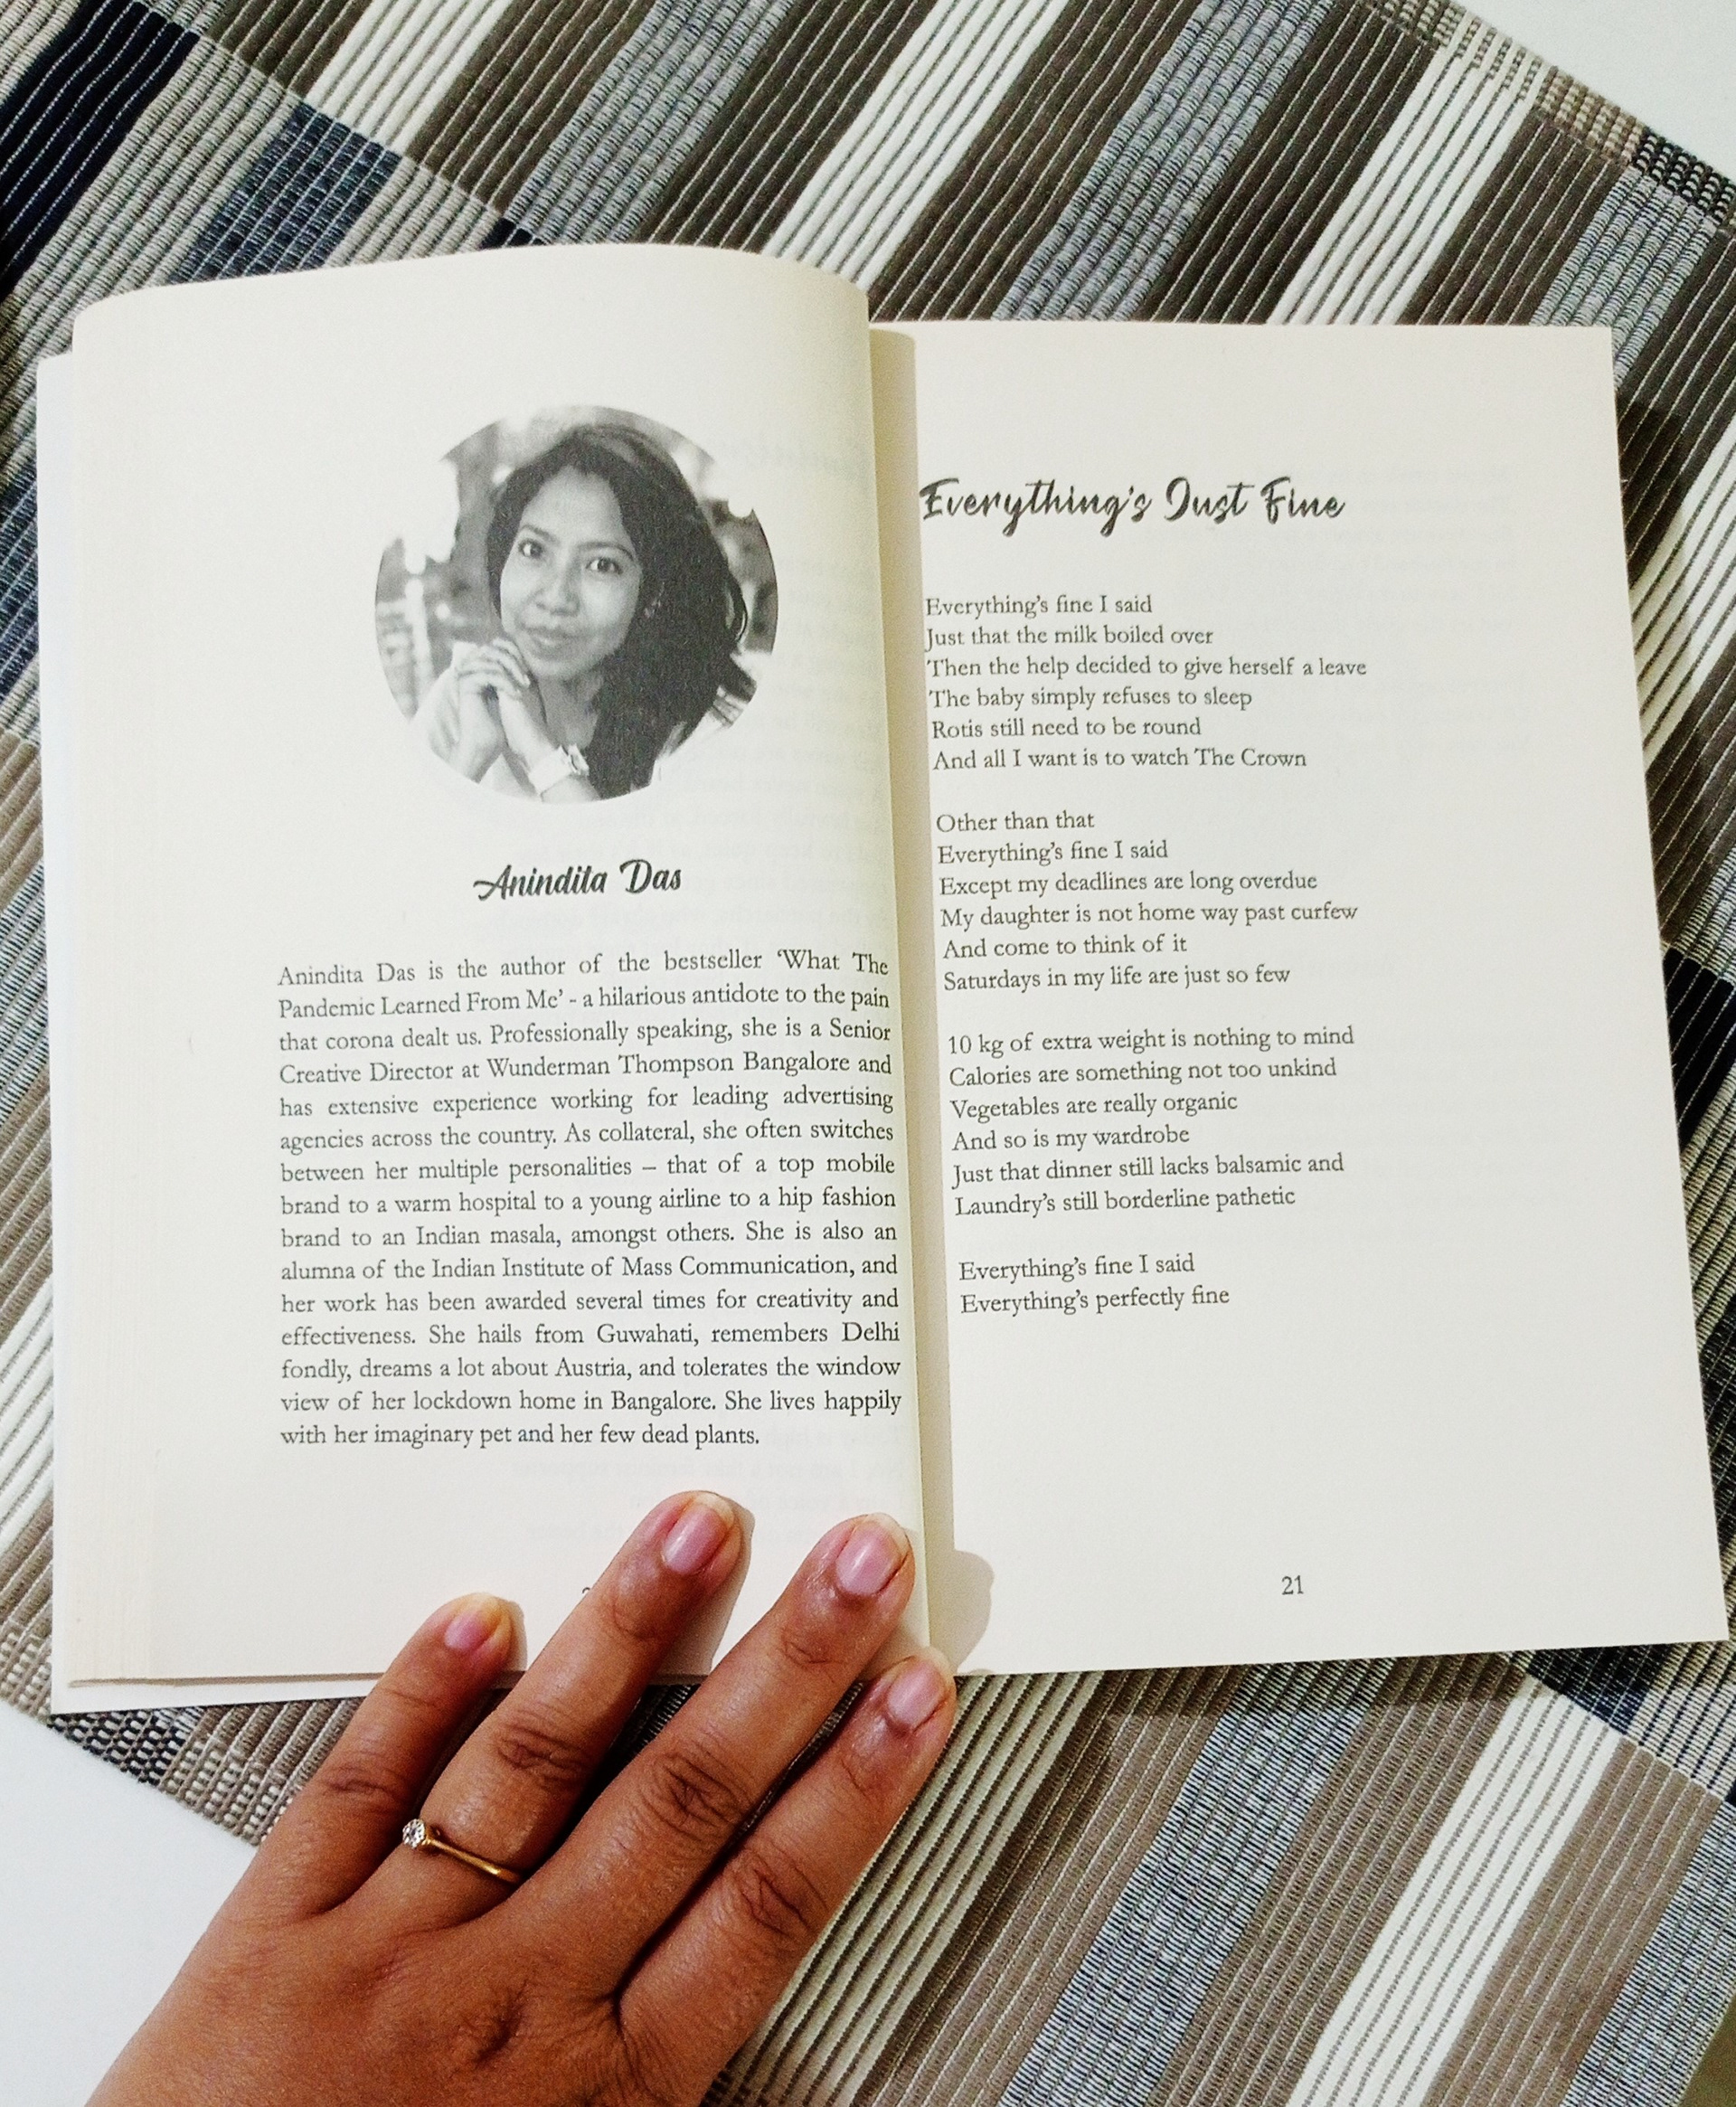 Anindita Das
Anindita Das is the author of the bestseller ‘What The
Pandemic Learned From Me’ - a hilarious antidote to the pain
that corona dealt us. Professionally speaking, she is a Senior
Creative Director at Wunderman Thompson Bangalore and
has extensive experience working for leading advertising
agencies across the country. As collateral, she often switches
between her multiple personalities – that of a top mobile
brand to a warm hospital to a young airline to a hip fashion
brand to an Indian masala, amongst others. She is also an
alumna of the Indian Institute of Mass Communication, and
her work has been awarded several times for creativity and
effectiveness. She hails from Guwahati, remembers Delhi
fondly, dreams a lot about Austria, and tolerates the window
view of her lockdown home in Bangalore. She lives happily
with her imaginary pet and her few dead plants.
Everything's Just Fine
Everything’s fine I said
Just that the milk boiled over
Then the help decided to give herself a leave
The baby simply refuses to sleep
Rotis still need to be round
And all I want is to watch The Crown
Other than that
Everything’s fine I said
Except my deadlines are long overdue
My daughter is not home way past curfew
And come to think of it
Saturdays in my life are just so few
10 kg of extra weight is nothing to mind
Calories are something not too unkind
Vegetables are really organic
And so is my wardrobe
Just that dinner still lacks balsamic and
Laundry’s still borderline pathetic
Everything’s fine I said
Everything’s perfectly fine
21